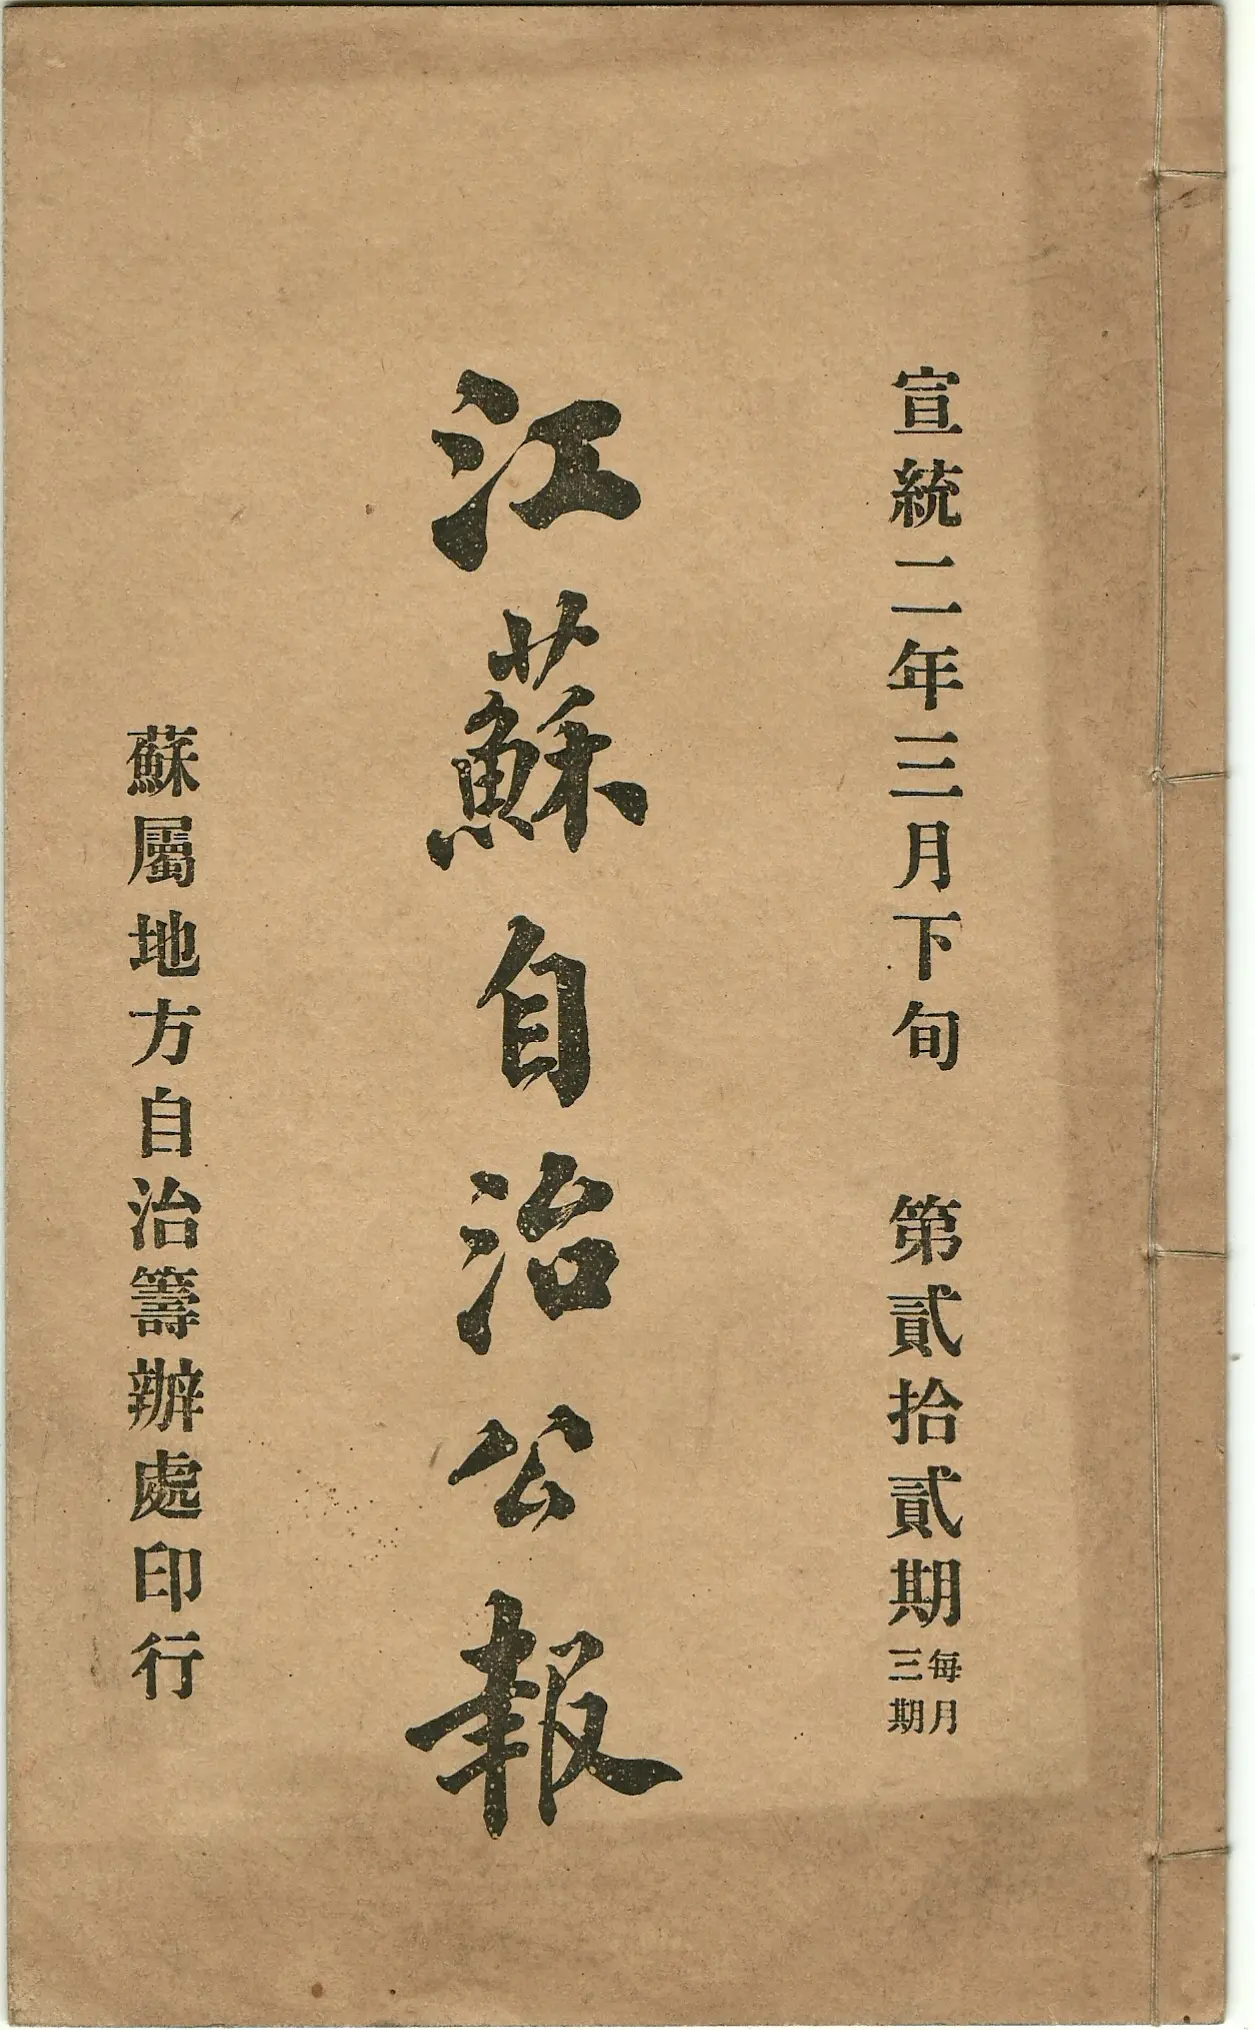 宣統二年三月下旬 第貳拾貳期 每月三期
江蘇自治公報
蘇屬地方自治籌辦處印行